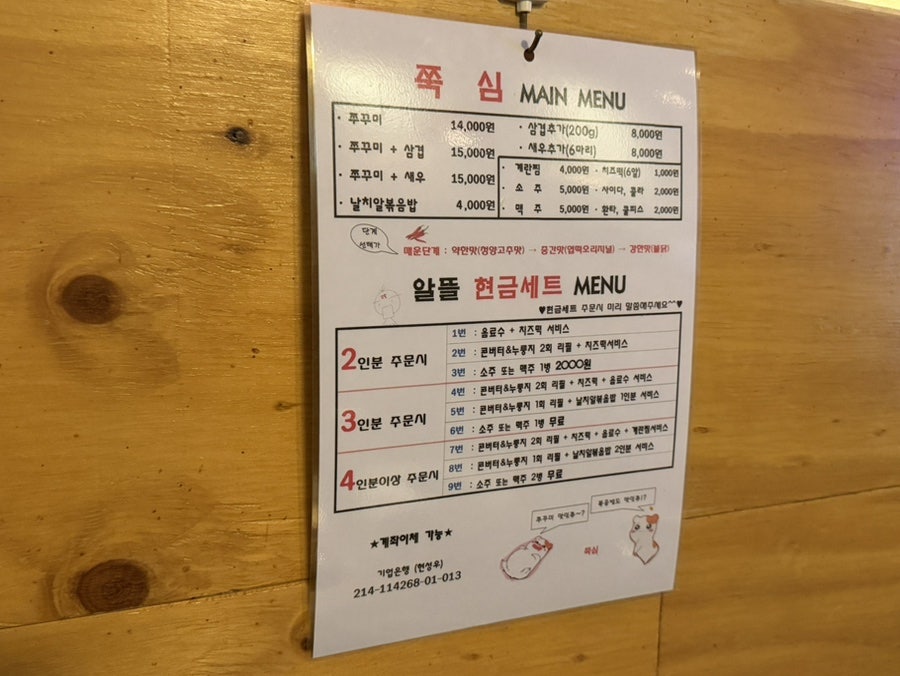 쭉 심 MAIN MENU
· 쭈꾸미 14,000원
· 쭈꾸미 + 삼겹 15,000원
· 쭈꾸미 + 새우 15,000원
· 날치알볶음밥 4,000원
· 삼겹추가(200g) 8,000원
· 새우추가(6마리) 8,000원
· 계란찜 4,000원 · 치즈떡(6알) 1,000원
· 소 주 5,000원 · 사이다, 콜라 2,000원
· 맥 주 5,000원 · 환타, 쿨피스 2,000원
단계
선택가
매운단계 : 약한맛(청양고추맛) → 중간맛(엽떡오리지널) → 강한맛(불닭)
알뜰 현금세트 MENU
♥현금세트 주문시 미리 말씀해주세요^^♥
2인분 주문시
1번 : 음료수 + 치즈떡 서비스
2번 : 콘버터&누룽지 2회 리필 + 치즈떡서비스
3번 : 소주 또는 맥주 1병 2000원
3인분 주문시
4번 : 콘버터&누룽지 2회 리필 + 치즈떡 + 음료수 서비스
5번 : 콘버터&누룽지 1회 리필 + 날치알볶음밥 1인분 서비스
6번 : 소주 또는 맥주 1병 무료
4인분이상 주문시
7번 : 콘버터&누룽지 2회 리필 + 치즈떡 + 음료수 + 계란찜서비스
8번 : 콘버터&누룽지 1회 리필 + 날치알볶음밥 2인분 서비스
9번 : 소주 또는 맥주 2병 무료
★계좌이체 가능★
기업은행 (현성우)
214-114268-01-013
쭈꾸미
볶음밥도
쭉심